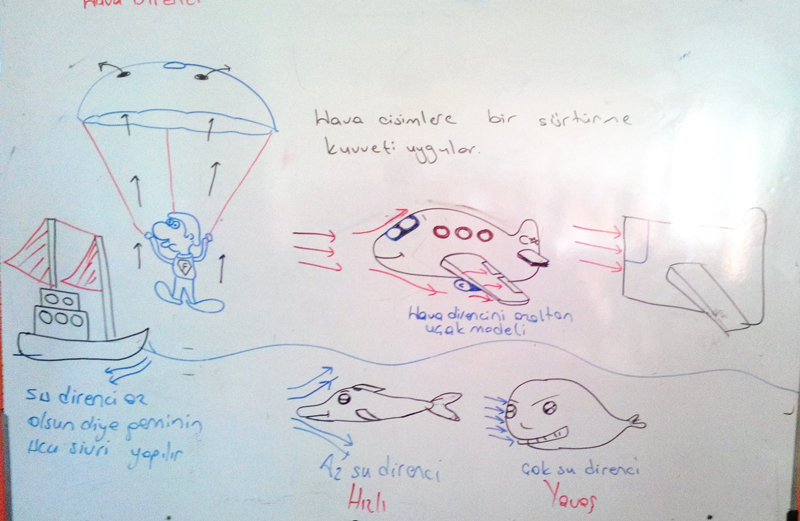 Hava direnci
Hava cisimlere bir sürtünme
kuvveti uygular.
F
Hava direncini azaltan
uçak modeli
Su direnci az
olsun diye geminin
ucu sivri yapılır
Az su direnci
Hızlı
Çok su direnci
Yavaş